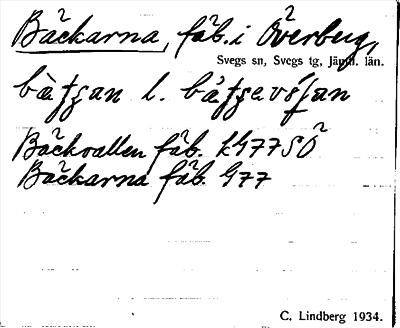 Bäckarna, fäb. i Överberg,
Svegs sn, Svegs tg, Jämtl. län.
l.
Bäckvallen fäb. LG77SÖ
Bäckarna fäb. G77
C. Lindberg 1934.